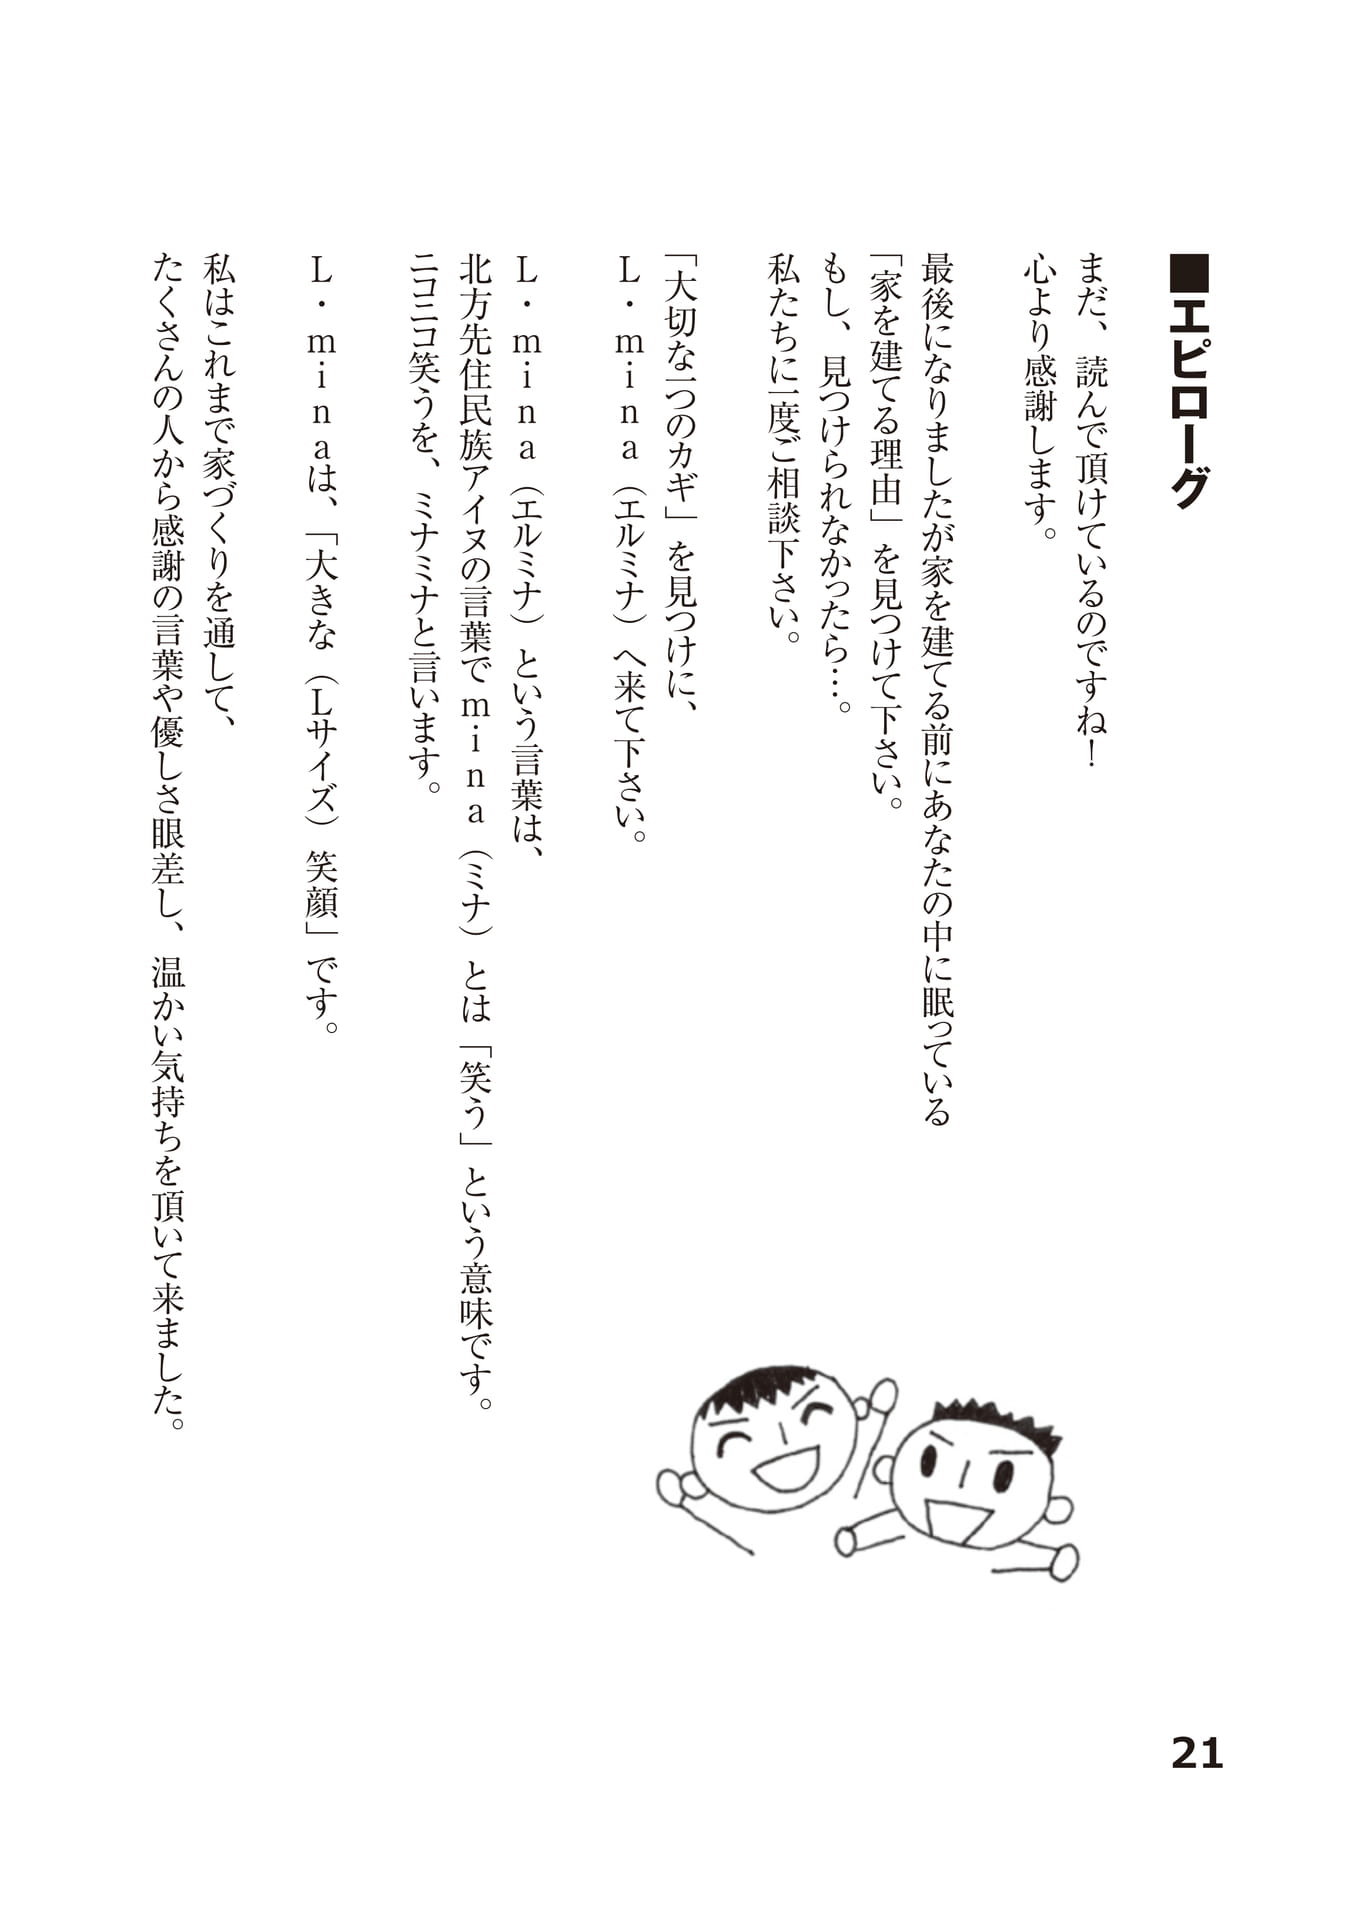 ■エピローグ
まだ、読んで頂けているのですね！
心より感謝します。
最後になりましたが家を建てる前にあなたの中に眠っている
「家を建てる理由」を見つけて下さい。
もし、見つけられなかったら…。
私たちに一度ご相談下さい。
「大切な一つのカギ」を見つけに、
L・mina（エルミナ）へ来て下さい。
L・mina（エルミナ）という言葉は、
北方先住民族アイヌの言葉でmina（ミナ）とは「笑う」という意味です。
ニコニコ笑うを、ミナミナと言います。
L・minaは、「大きな（Lサイズ）笑顔」です。
私はこれまで家づくりを通して、
たくさんの人から感謝の言葉や優しさ眼差し、温かい気持ちを頂いて来ました。
21